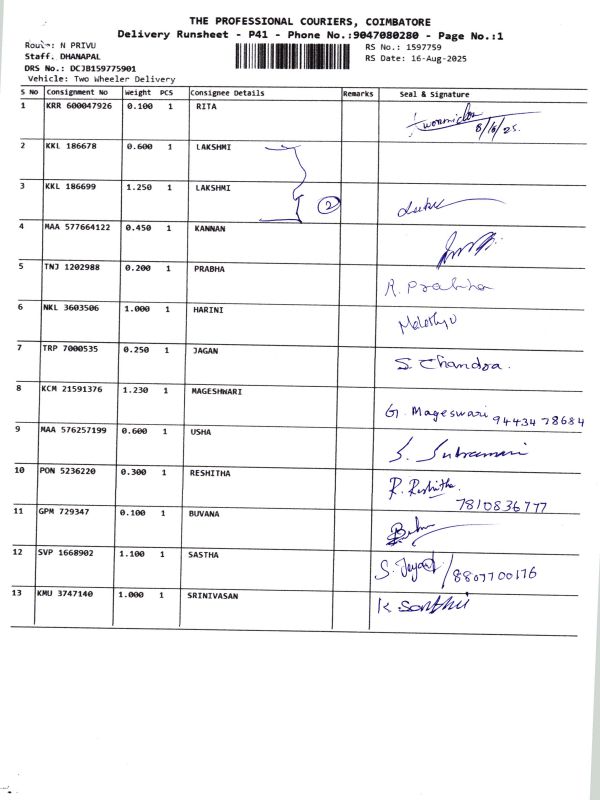 THE PROFESSIONAL COURIERS, COIMBATORE
Delivery Runsheet - P41 - Phone No.:9047080280 - Page No.:1
Route: N PRIVU
RS No.: 1597759
Staff. DHANAPAL
RS Date: 16-Aug-2025
DRS No.: DCJB159775901
Vehicle: Two Wheeler Delivery
S No Consignment No Weight PCS Consignee Details Remarks Seal & Signature
1 KRR 600047926 0.100 1 RITA
2 KKL 186678 0.600 1 LAKSHMI
3 KKL 186699 1.250 1 LAKSHMI 2
4 MAA 577664122 0.450 1 KANNAN
5 TNJ 1202988 0.200 1 PRABHA R. Prabha
6 NKL 3603506 1.000 1 HARINI
7 TRP 7000535 0.250 1 JAGAN S. Chandra.
8 KCM 21591376 1.230 1 MAGESHWARI G. Mageswari 94434 78684
9 MAA 576257199 0.600 1 USHA S. Subramani
10 PON 5236220 0.300 1 RESHITHA R. Reshitha 7810836777
11 GPM 729347 0.100 1 BUVANA
12 SVP 1668902 1.100 1 SASTHA S. / 8807700176
13 KMU 3747140 1.000 1 SRINIVASAN K